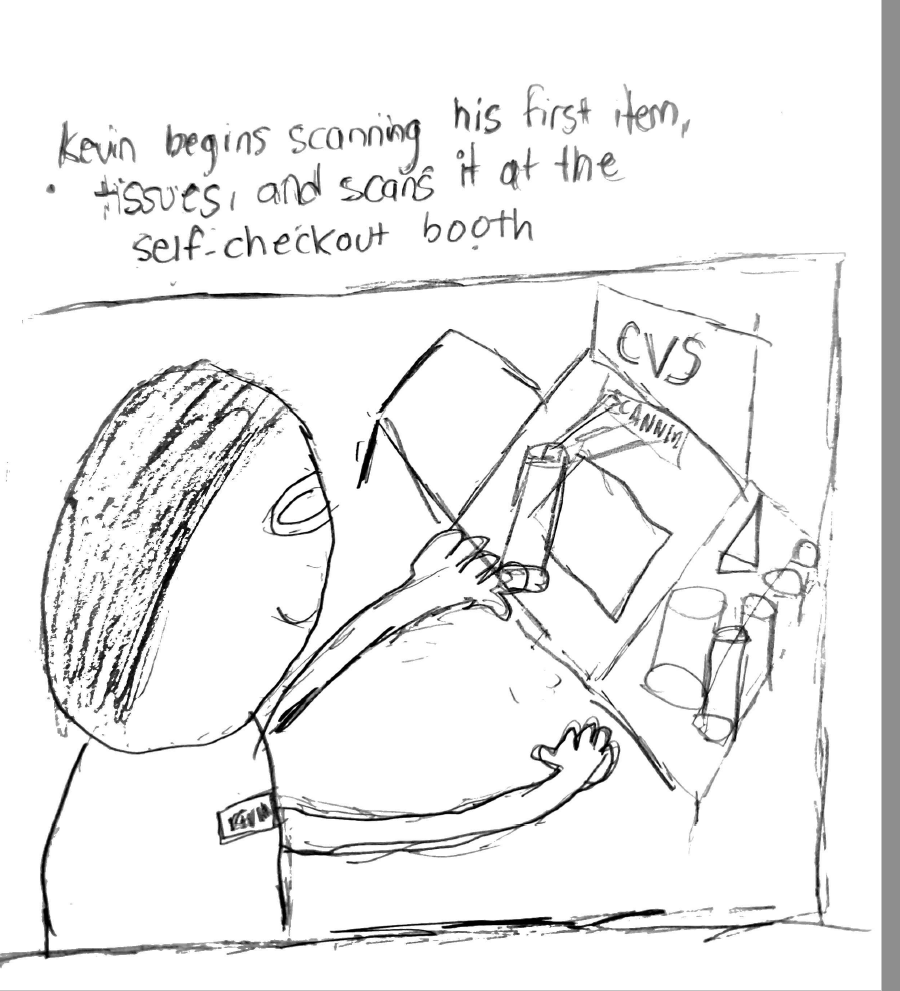 Kevin begins scanning his first item,
tissues, and scans it at the
self-checkout booth
CVS
SCANNIN
KEVIN